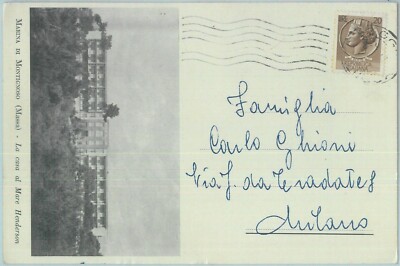 MARINA DI MONTIGNOSO (Massa) - La casa al Mare Henderson
Famiglia
Carlo Ghioni
Via J. da Tradates
Milano